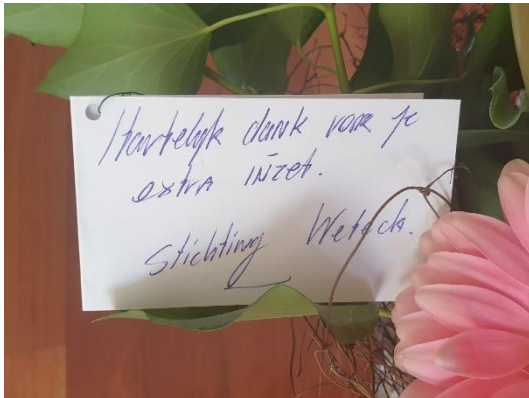 Hartelijk dank voor je
extra inzet.
Stichting Weteck.